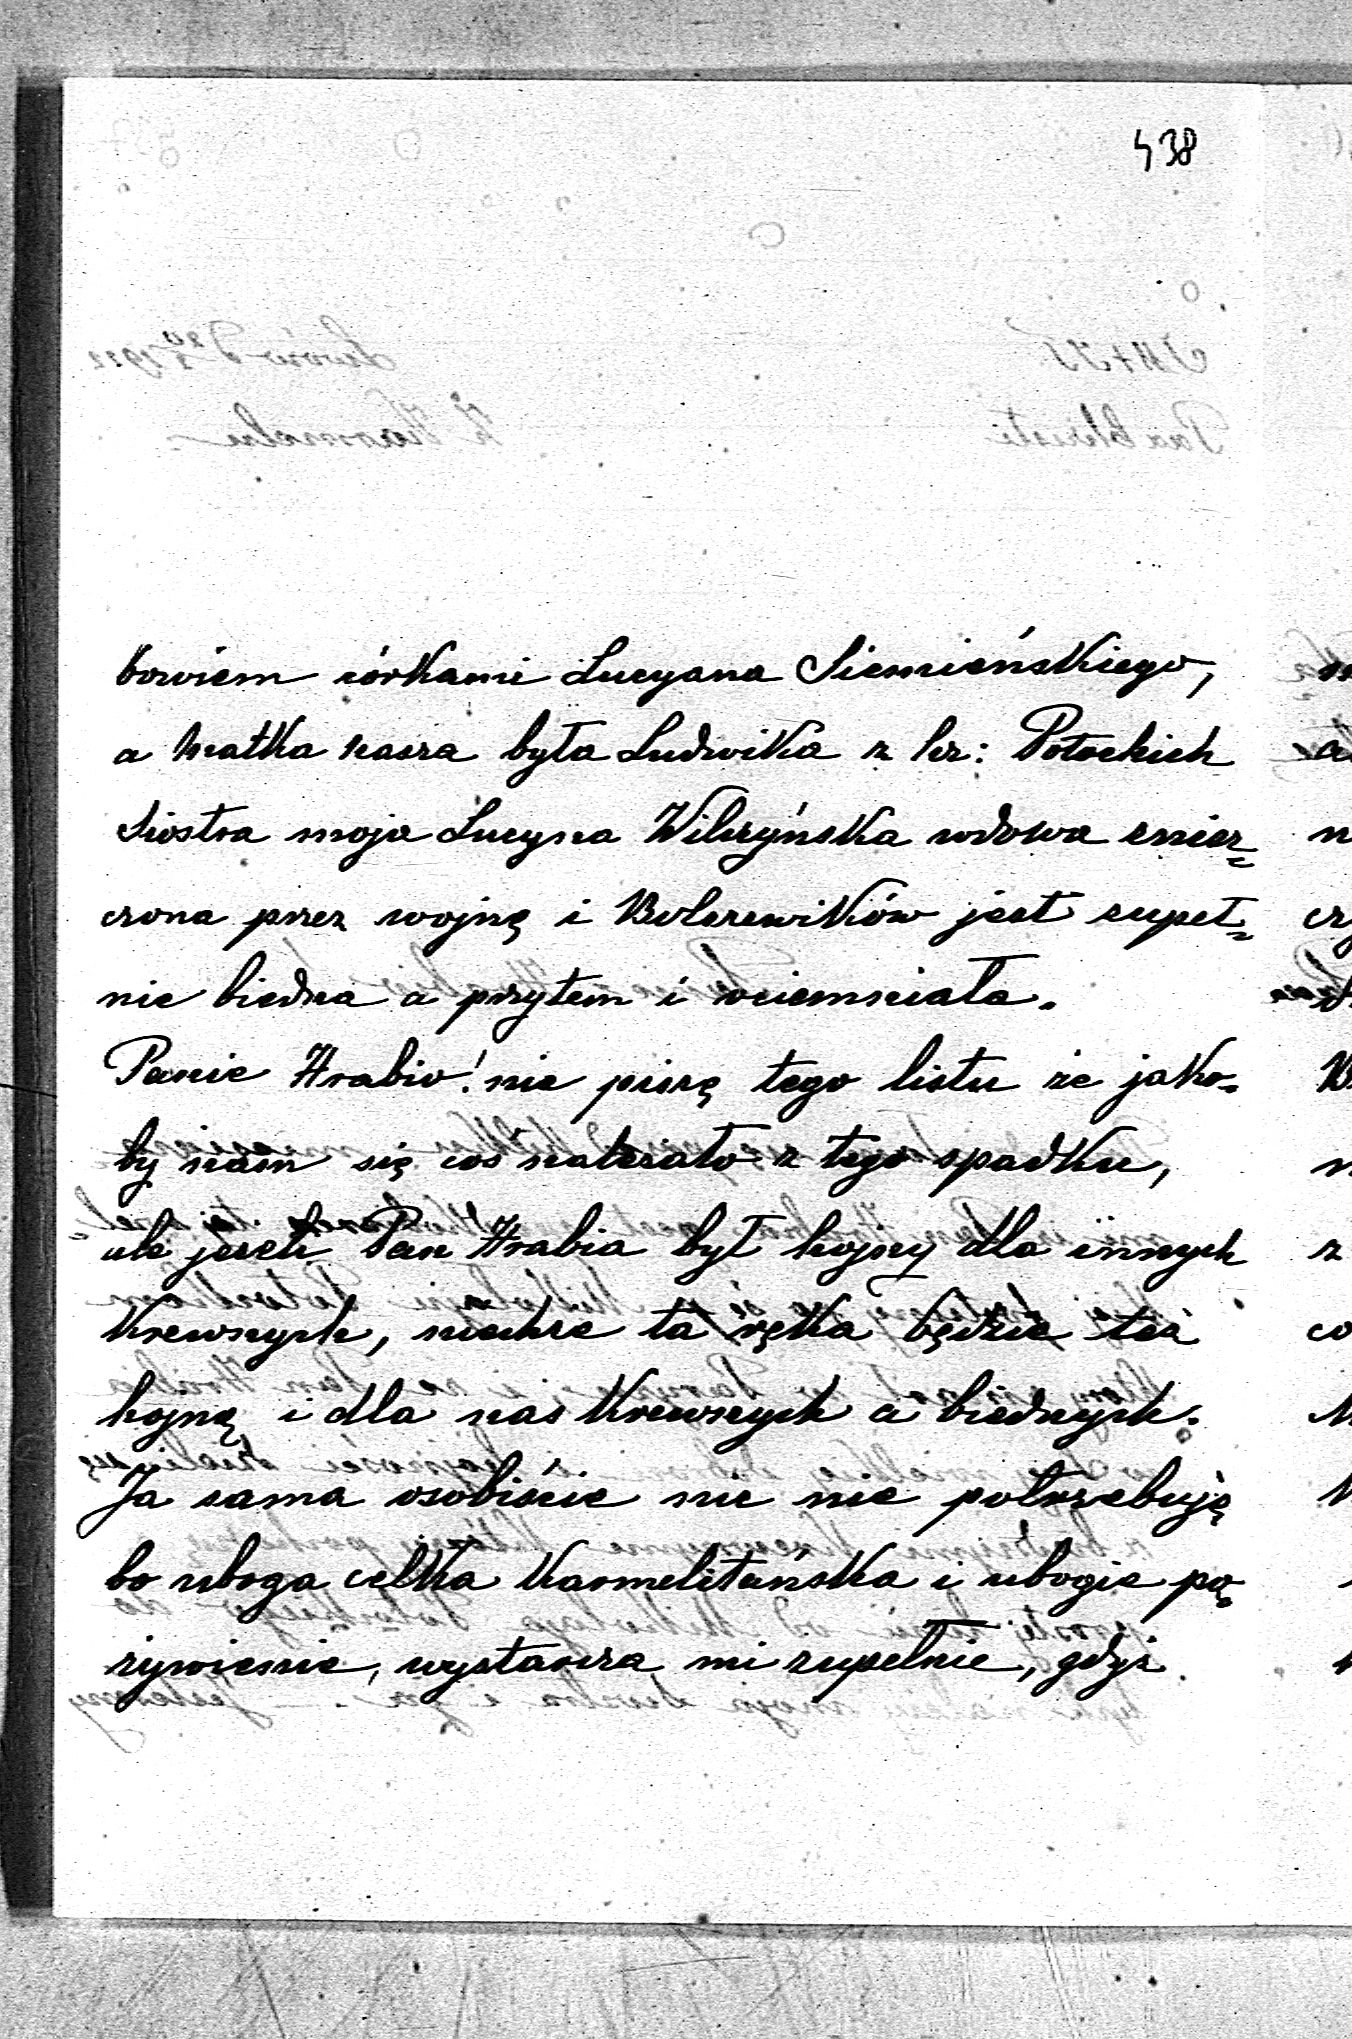 438
bowiem córkami Lucyana Siemieńskiego,
a Matka nasza była Ludwika z hr: Potockich
Siostra moja Lucyna Wilczyńska wdowa znisz=
czona przez wojnę i Bolszewików jest zupeł=
nie biedna a przytem i ociemniała.
Panie Hrabio! nie piszę tego listu że jako-
by nam się coś należało z tego spadku,
ale jeżeli Pan Hrabia był hojny dla innych
Krewnych, niechże ta ręka będzie też
hojną i dla nas Krewnych a biednych.
Ja sama osobiście nic nie potrzebuję
bo uboga celka Karmelitańska i ubogie po=
żywienie, wystarcza mi zupełnie, gdyż